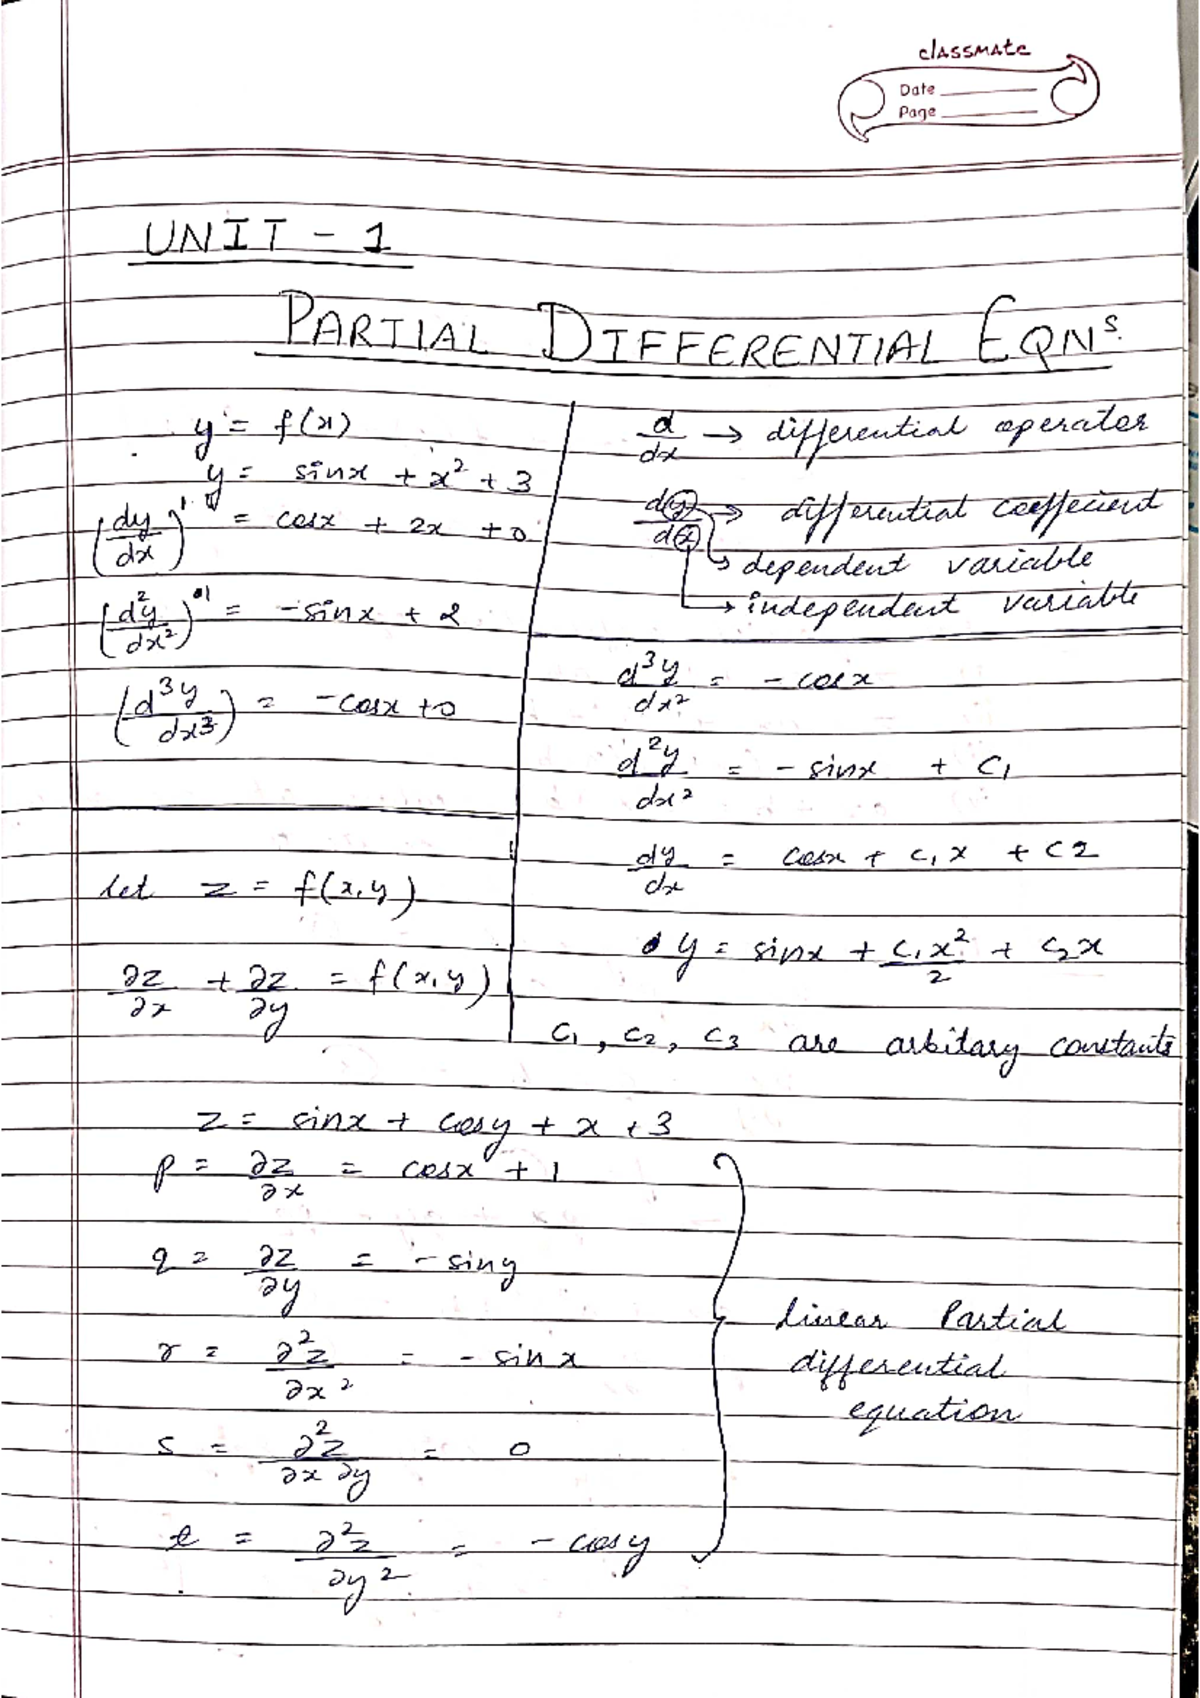 classmate
Date
Page
UNIT - 1
PARTIAL DIFFERENTIAL EQNs.
y = f(x)
y = sinx + x² + 3
(dy/dx)¹ = cosx + 2x + 0
(d²y/dx²)¹ = -sinx + 2
(d³y/dx³) = -cosx + 0
d/dx → differential operator
dy/dx → differential coeffecient
→ dependent variable
→ independent variable
d³y/dx² = - cosx
d²y/dx² = - sinx + C₁
dy/dx = cosx + C₁x + C2
y = sinx + C₁x²/2 + C₂x
C₁, C₂, C₃ are arbitary constants
let z = f(x,y)
∂z/∂x + ∂z/∂y = f(x,y)
z = sinx + cosy + x + 3
p = ∂z/∂x = cosx + 1
q = ∂z/∂y = - siny
r = ∂²z/∂x² = - sinx
s = ∂²z/∂x∂y = 0
t = ∂²z/∂y² = - cosy
linear Partial
differential
equation